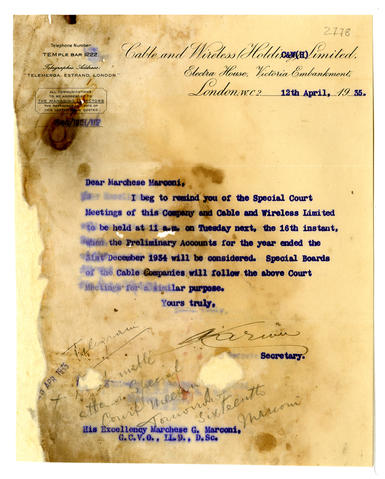 2778
Telephone Number:
TEMPLE BAR 1222
Telegraphic Address:
TELEHERGA, ESTRAND, LONDON
ALL COMMUNICATIONS
TO BE ADDRESSED TO
THE MANAGING DIRECTORS
Cable and Wireless (Holding) Limited.
C&W(H)
Electra House, Victoria Embankment,
London, W.C.2 12th April, 1935.
Dear Marchese Marconi,
I beg to remind you of the Special Court
Meetings of this Company and Cable and Wireless Limited
to be held at 11 a.m. on Tuesday next, the 16th instant,
when the Preliminary Accounts for the year ended the
31st December 1934 will be considered. Special Boards
of the Cable Companies will follow the above Court
Meetings for a similar purpose.
Yours truly,
Secretary.
Telegram
APR 1935
Court
Tomorrow
Sixteenth
Marconi
His Excellency Marchese G. Marconi,
G.C.V.O., LL.D., D.Sc.